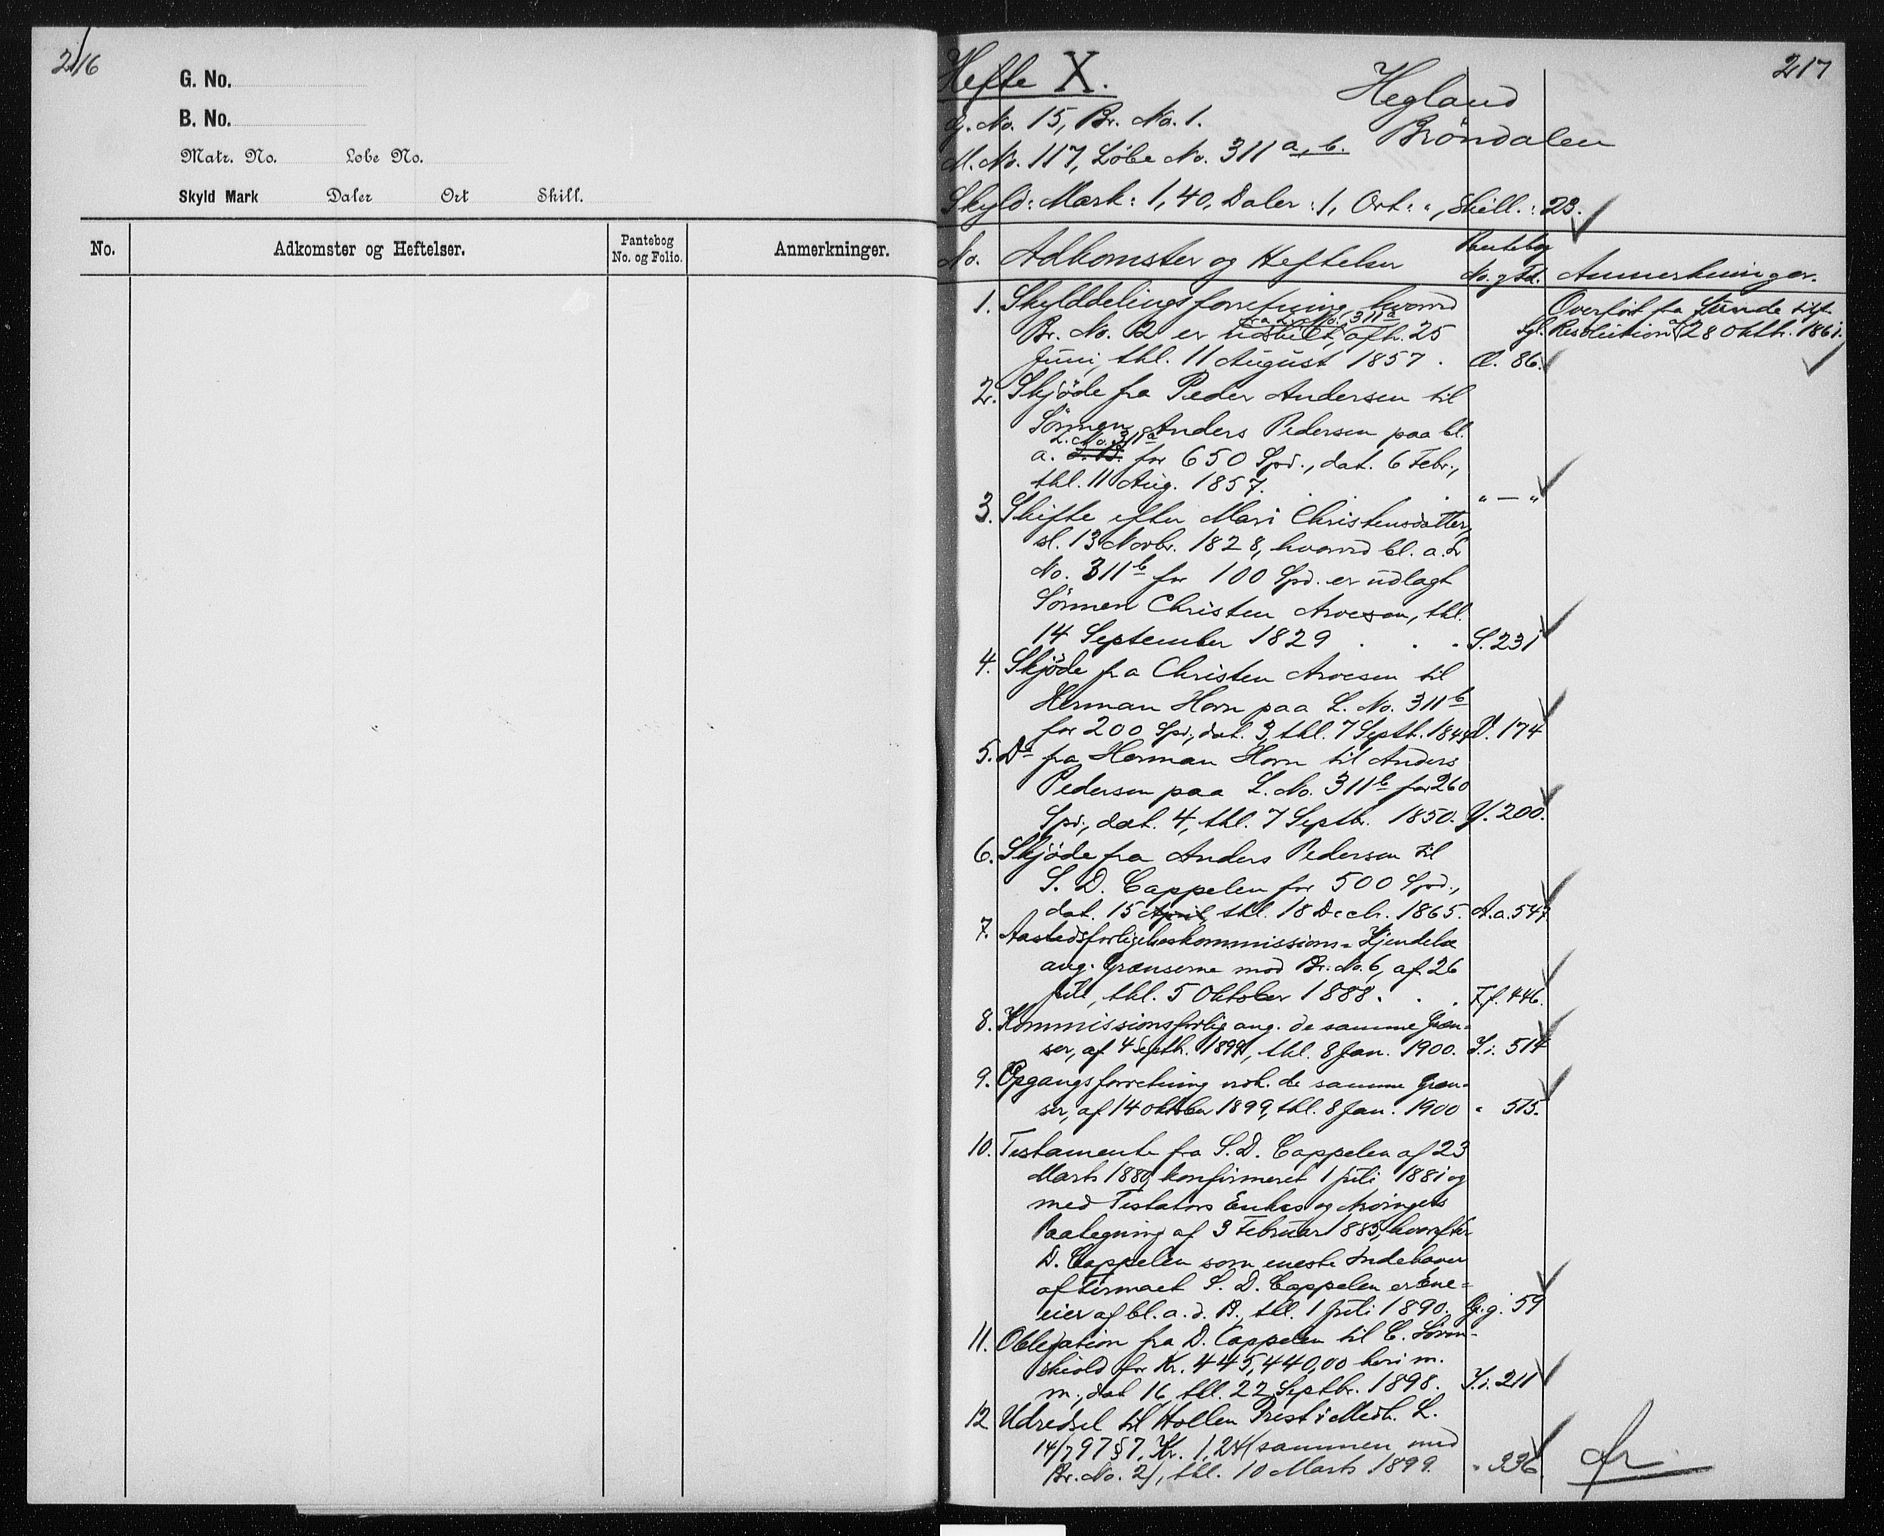 216
G. No.
B. No.
Matr. No. Lobe No.
Skyld Mark Daler Ort Skill.
No. Adkomster og Heftelser. Pantebog No. og Folio. Anmerkninger.
217
Hefte X.
Hegland
G. No. 15, Br. No. 1. Bröndalen
M. No. 117, Löbe No. 311 a, b.
Skyld: Mark: 1,40, Daler: 1, Ort: ", Skill.: 23.
No. Adkomster og Heftelser Pantebog No. og Fol. Anmerkninger.
1. Skylddelingsforretning, hvorved Overfört fra Lunde
fra L. No. 311a
Br. No. 2 er udskilt, afh. 25 Kgl. Resolution af 28 Oktbr. 1861.
Juni, thl. 11 August 1857. Æ. 86.
2. Skjöde fra Peder Andersen til
Sönnen Anders Pedersen paa bl.
L. No. 311a
a. d. B. for 650 Spd., dat. 6 Febr.,
thl. 11 Aug. 1857. " — "
3. Skifte efter Mari Christensdatter,
sl. 13 Novbr. 1828, hvorved bl. a. L
No. 311b for 100 Spd. er udlagt
Sönnen Christen Arvesen, thl.
14 September 1829 . . . S. 231
4. Skjöde fra Christen Arvesen til
Herman Horn paa L. No. 311b
for 200 Spd., dat. 3, thl. 7 Septb. V. 174
5. Do fra Herman Horn til Anders
Pedersen paa L. No. 311b for 260
Spd., dat. 4, thl. 7 Septbr. 1850. Y. 200.
6. Skjöde fra Anders Pedersen til
S. D. Cappelen for 500 Spd.,
dat. 15 April, thl. 18 Decb. 1865. A.a. 547
7. Aastedsforligelseskommissions-Kjendelse
ang. Grænserne mod Br. No. 6, af 26
Juli, thl. 5 Oktober 1888. . . F.f. 446.
8. Kommissionsforlig ang. de samme Græn-
ser, af 4 Septb. 1899, thl. 8 Jan. 1900. I.i. 514
9. Opgangsforretning vedk. de samme Græn-
ser, af 14 Oktober 1899, thl. 8 Jan. 1900 " 515.
10. Testamente fra S. D. Cappelen af 23
Marts 1880, konfirmeret 1 Juli 1881 og
med Testators Enkes og Arvingers
Paategning af 3 Februar 1885, hvorefter
D. Cappelen som eneste Indehaver
af Firmaet S. D. Cappelen er Ene-
eier af bl. a. d. B., thl. 1 Juli 1890. G.g. 59
11. Obligation fra D. Cappelen til C. Löven-
skiold for Kr. 445,440,00 heri m.
m., dat 16, thl. 22 Septbr. 1898. I.i. 211
12 Udredsel til Hollen Prest i Medh. L.
14/7 97 § 7, Kr. 1,24 (sammen med
Br. No. 2), thl. 10 Marts 1899. " 336.